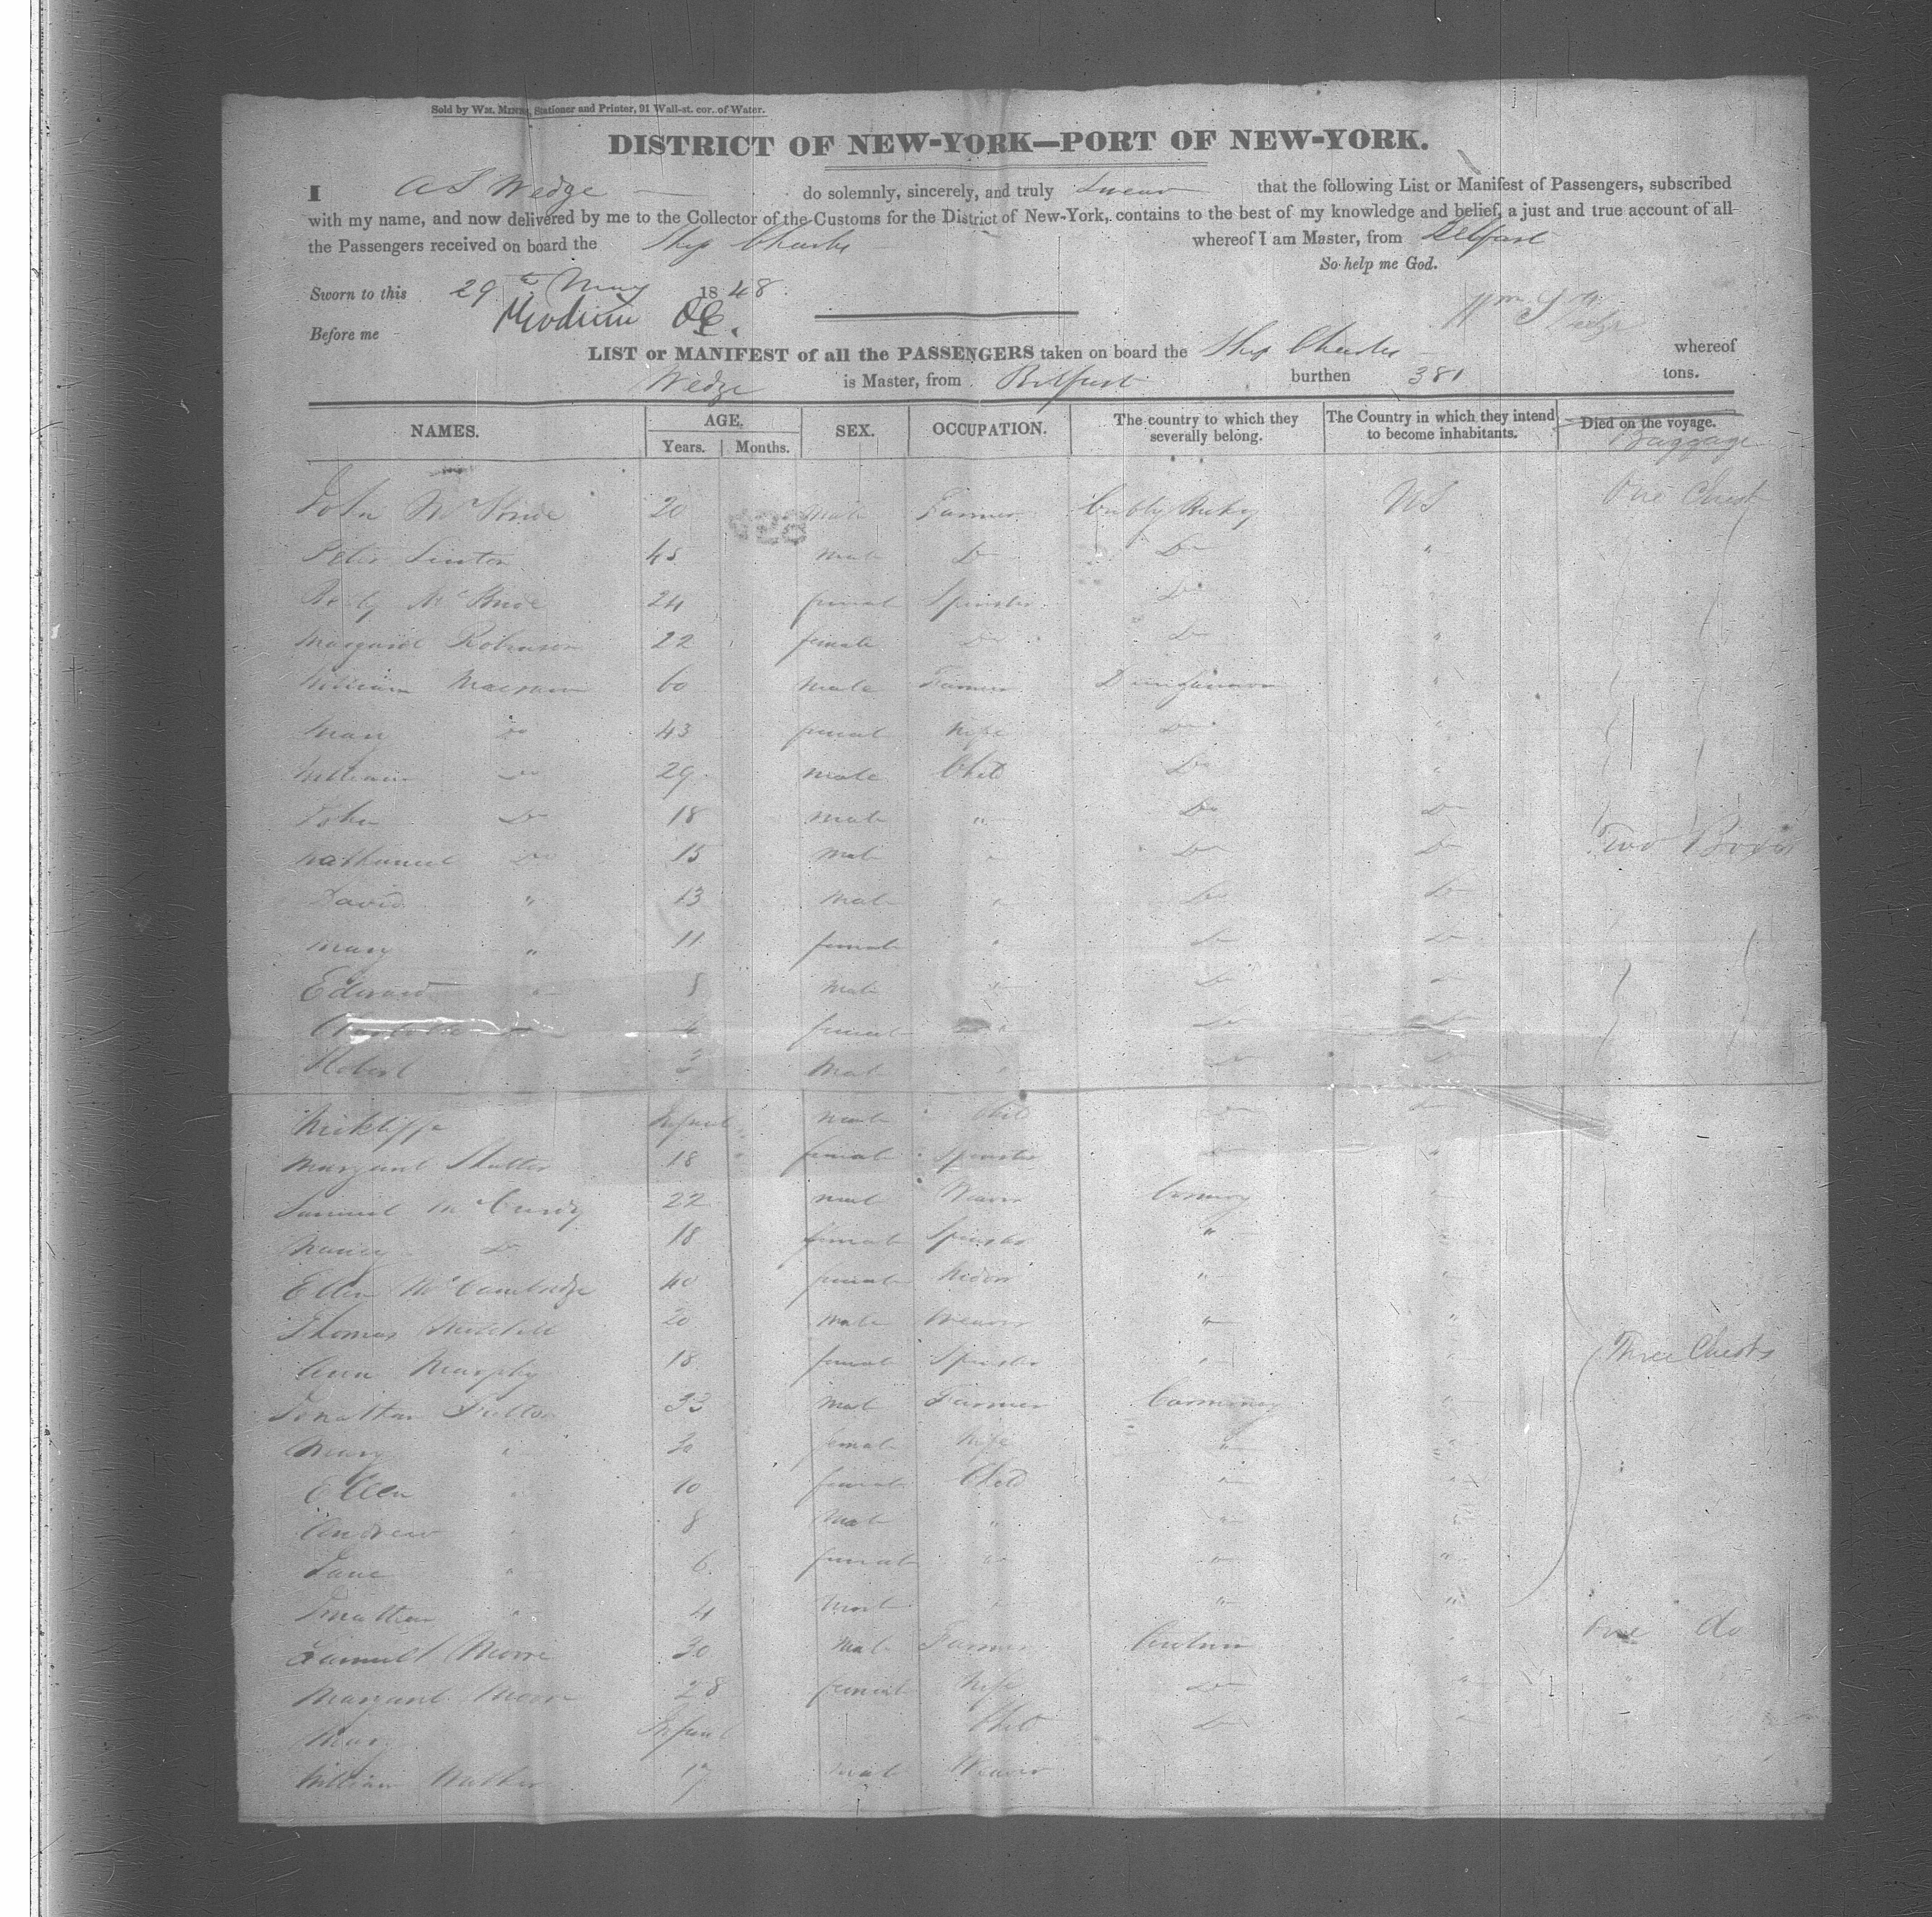 Sold by WM. MINNS, Stationer and Printer, 91 Wall-st. cor. of Water.
DISTRICT OF NEW-YORK—PORT OF NEW-YORK.
I A S Wedge do solemnly, sincerely, and truly swear that the following List or Manifest of Passengers, subscribed
with my name, and now delivered by me to the Collector of the Customs for the District of New-York, contains to the best of my knowledge and belief, a just and true account of all
the Passengers received on board the Ship Charles whereof I am Master, from Belfast
So help me God.
Sworn to this 29th May 1848
Before me
LIST or MANIFEST of all the PASSENGERS taken on board the Ship Charles whereof
Wedge is Master, from Belfast burthen 381 tons.
NAMES. AGE. SEX. OCCUPATION. The country to which they severally belong. The Country in which they intend to become inhabitants. Died on the voyage.
Years. Months. Baggage
John 20 male Farmer US One Chest
Peter 45 male Do Do "
24 femal Spinster Do
Margaret Robinson 22 female Do Do "
William 60 male Farmer Dungannon "
Mary Do 43 femal Wife Do "
William Do 29 male Chil Do "
John Do 18 male " Do Do
Nathaniel Do 15 mal " Do Do Two Boxes
David " 13 mal " Do Do
Mary " 11 femal " Do Do
Edward " 8 mal " Do Do
femal " Do Do
Robert 3 mal " Do Do
Infant male Chil Do Do
Margaret 18 femal Spinster Do "
Samuel McCurdy 22 mal Weaver "
Nancy Do 18 femal Spinster " "
Ellen McCambridge 40 femal Widow " "
Thomas Mitchell 20 male Weaver " "
Ann Murphy 18 femal Spinster " " Three Chests
Jonathan 33 mal Farmer "
Mary " 30 female Wife " "
Ellen " 10 female Child " "
Andrew " 8 mal " " "
Jane " 6 femal " " "
Jonathan " 4 mal " " "
Samuel Moore 30 mal Farmer Antrim " One do
Margaret Moore 28 femal Wife Do " "
Mary Infant Chil Do "
William 17 male Weaver